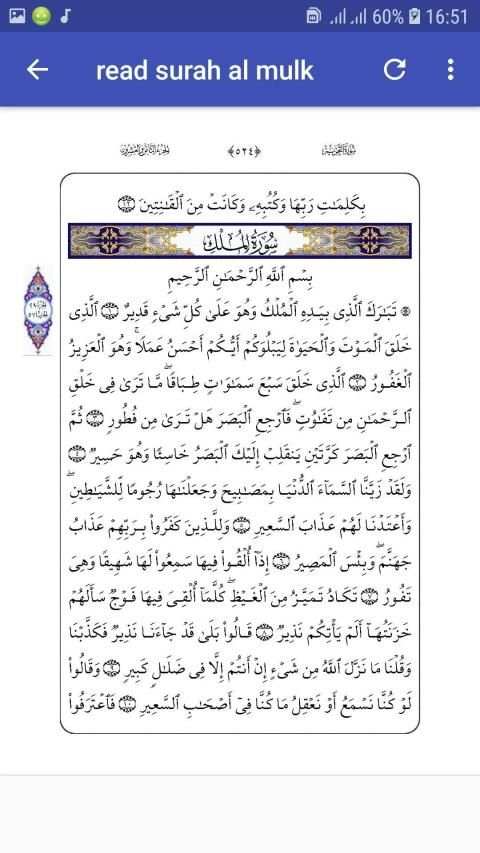 60% 16:51
read surah al mulk
سورة التحريم ﴿٥٢٤﴾ الجزء الثامن والعشرون
بِكَلِمَٰتِ رَبِّهَا وَكُتُبِهِۦ وَكَانَتۡ مِنَ ٱلۡقَٰنِتِينَ ١٢
سُورَةُ المُلۡكِ
بِسۡمِ ٱللَّهِ ٱلرَّحۡمَٰنِ ٱلرَّحِيمِ
۞ تَبَٰرَكَ ٱلَّذِي بِيَدِهِ ٱلۡمُلۡكُ وَهُوَ عَلَىٰ كُلِّ شَيۡءٖ قَدِيرٌ ١ ٱلَّذِي
خَلَقَ ٱلۡمَوۡتَ وَٱلۡحَيَوٰةَ لِيَبۡلُوَكُمۡ أَيُّكُمۡ أَحۡسَنُ عَمَلٗاۚ وَهُوَ ٱلۡعَزِيزُ
ٱلۡغَفُورُ ٢ ٱلَّذِي خَلَقَ سَبۡعَ سَمَٰوَٰتٖ طِبَاقٗاۖ مَّا تَرَىٰ فِي خَلۡقِ
ٱلرَّحۡمَٰنِ مِن تَفَٰوُتٖۖ فَٱرۡجِعِ ٱلۡبَصَرَ هَلۡ تَرَىٰ مِن فُطُورٖ ٣ ثُمَّ
ٱرۡجِعِ ٱلۡبَصَرَ كَرَّتَيۡنِ يَنقَلِبۡ إِلَيۡكَ ٱلۡبَصَرُ خَاسِئٗا وَهُوَ حَسِيرٞ ٤
وَلَقَدۡ زَيَّنَّا ٱلسَّمَآءَ ٱلدُّنۡيَا بِمَصَٰبِيحَ وَجَعَلۡنَٰهَا رُجُومٗا لِّلشَّيَٰطِينِۖ
وَأَعۡتَدۡنَا لَهُمۡ عَذَابَ ٱلسَّعِيرِ ٥ وَلِلَّذِينَ كَفَرُواْ بِرَبِّهِمۡ عَذَابُ
جَهَنَّمَۖ وَبِئۡسَ ٱلۡمَصِيرُ ٦ إِذَآ أُلۡقُواْ فِيهَا سَمِعُواْ لَهَا شَهِيقٗا وَهِيَ
تَفُورُ ٧ تَكَادُ تَمَيَّزُ مِنَ ٱلۡغَيۡظِۖ كُلَّمَآ أُلۡقِيَ فِيهَا فَوۡجٞ سَأَلَهُمۡ
خَزَنَتُهَآ أَلَمۡ يَأۡتِكُمۡ نَذِيرٞ ٨ قَالُواْ بَلَىٰ قَدۡ جَآءَنَا نَذِيرٞ فَكَذَّبۡنَا
وَقُلۡنَا مَا نَزَّلَ ٱللَّهُ مِن شَيۡءٍ إِنۡ أَنتُمۡ إِلَّا فِي ضَلَٰلٖ كَبِيرٖ ٩ وَقَالُواْ
لَوۡ كُنَّا نَسۡمَعُ أَوۡ نَعۡقِلُ مَا كُنَّا فِيٓ أَصۡحَٰبِ ٱلسَّعِيرِ ١٠ فَٱعۡتَرَفُواْ